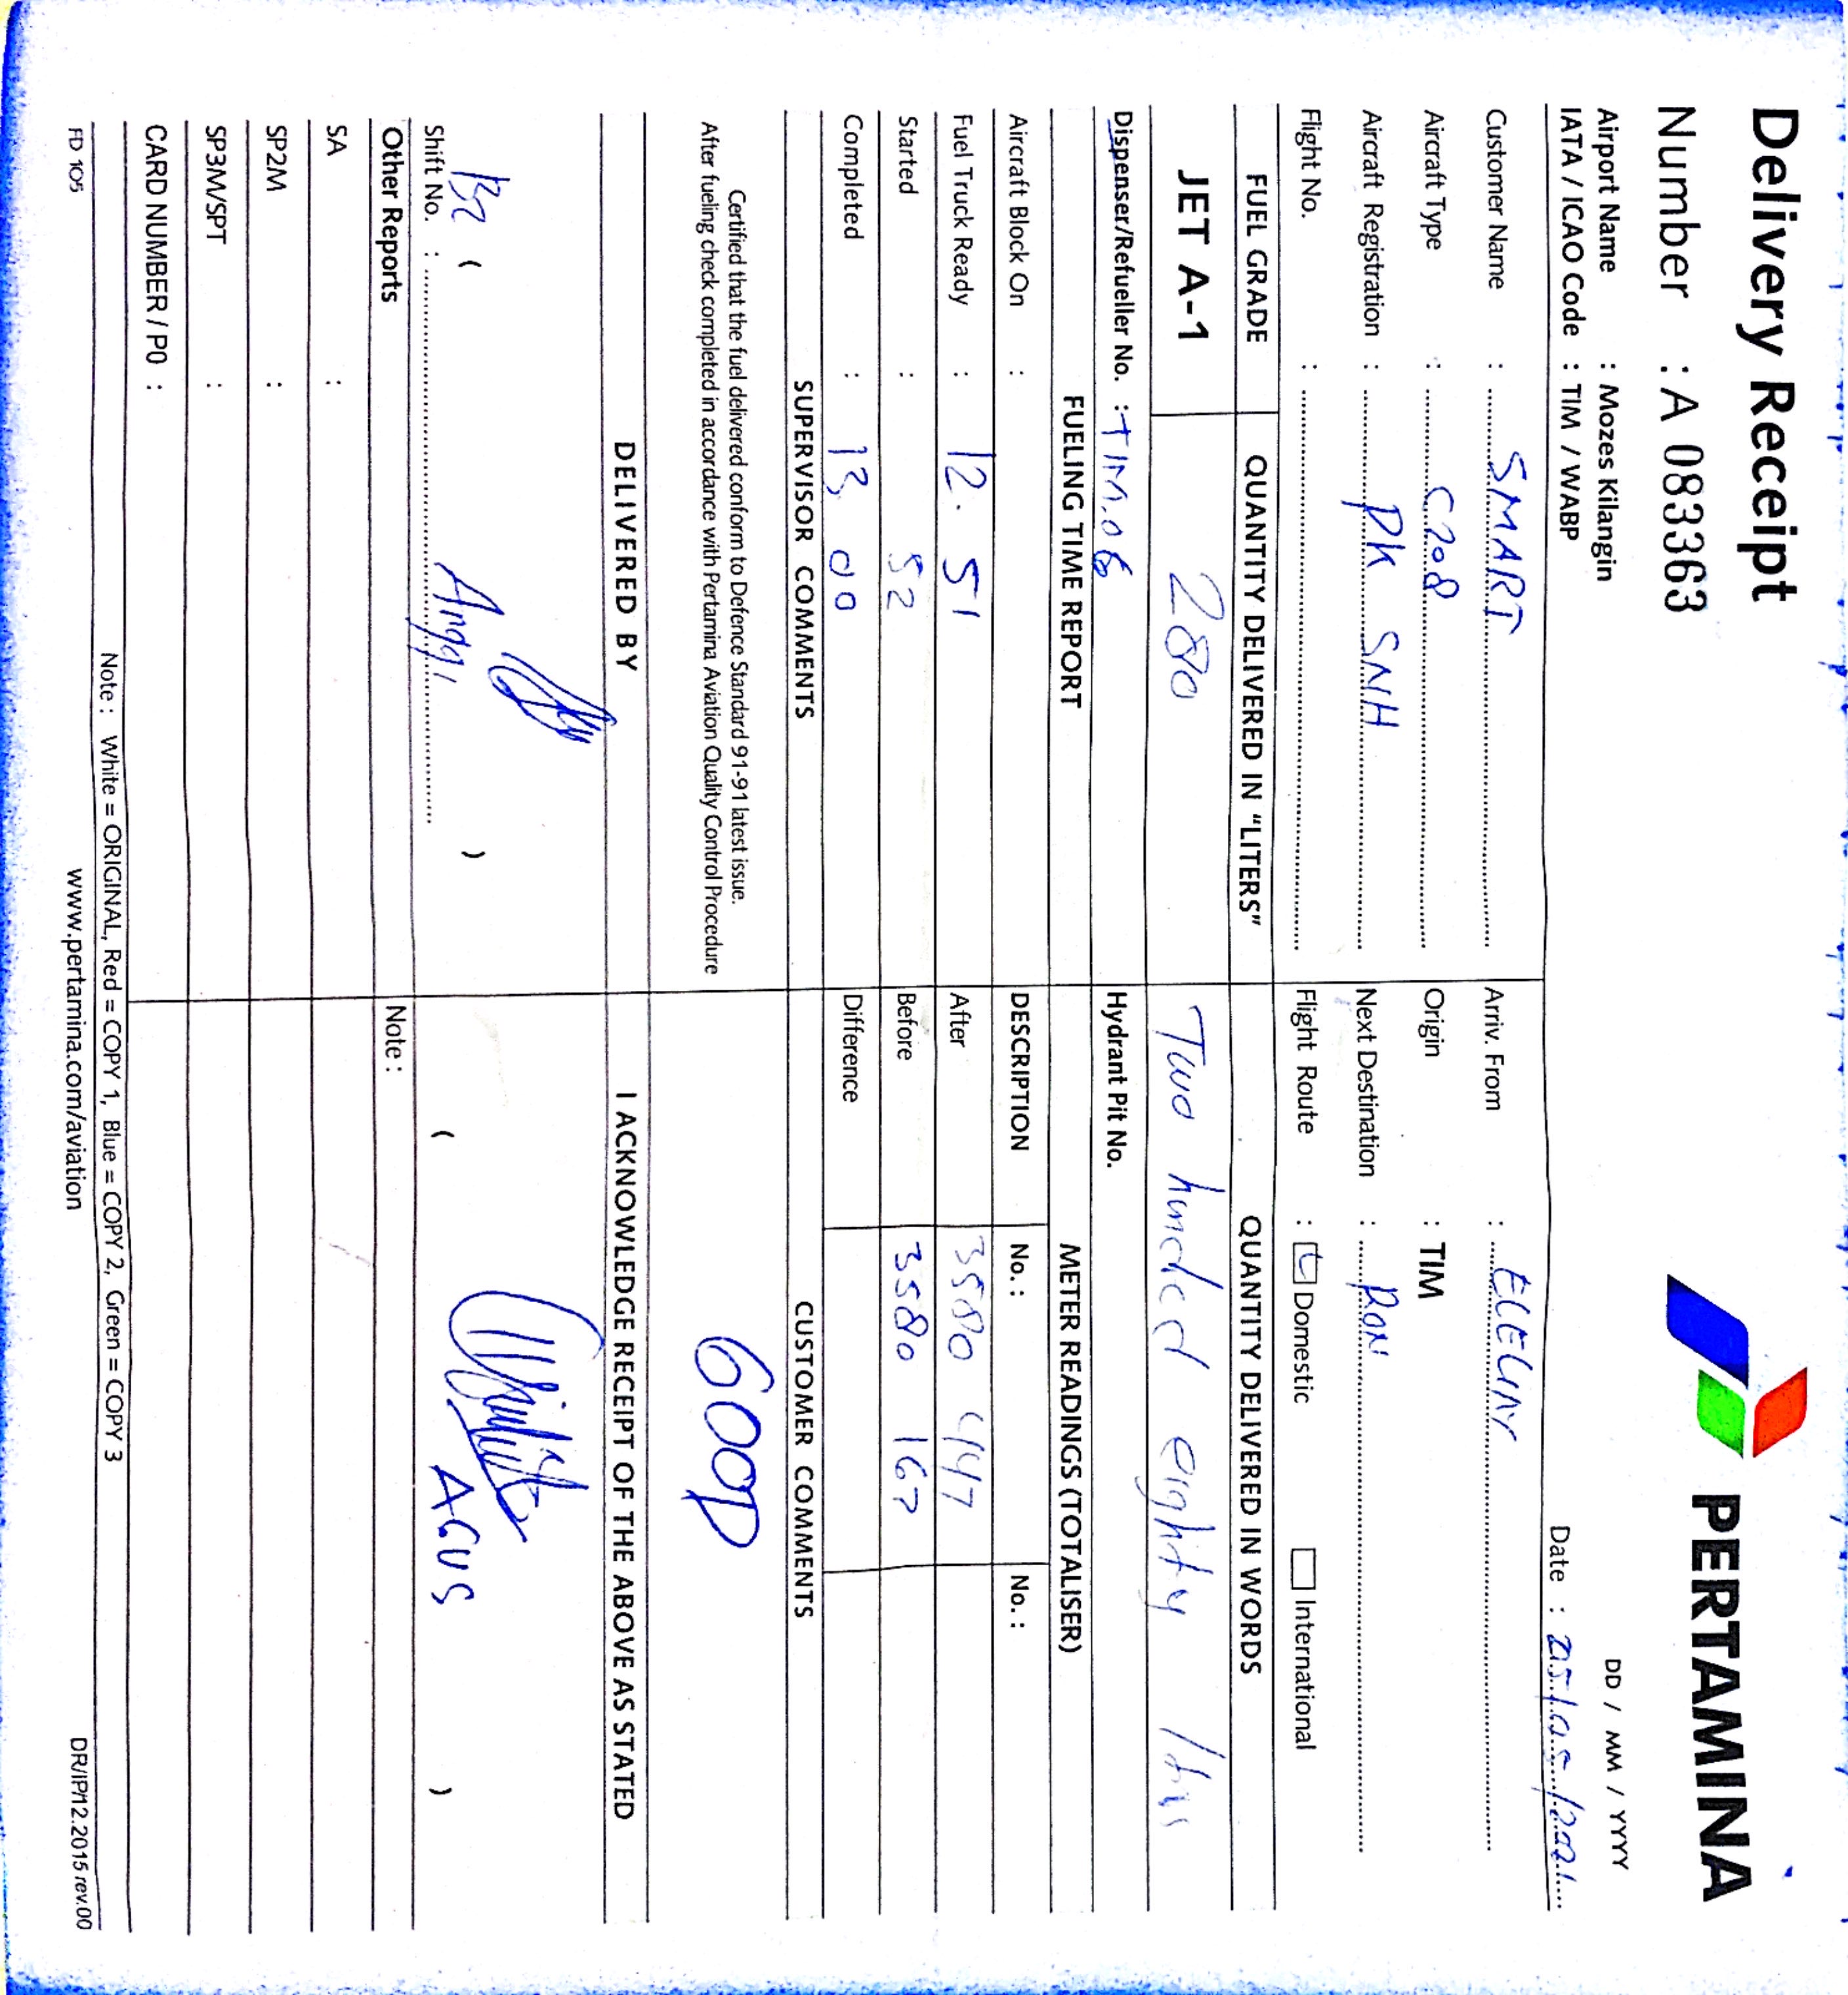 Delivery Receipt
Number : A 083363
PERTAMINA
Airport Name : Mozes Kilangin
IATA / ICAO Code : TIM / WABP
DD / MM / YYYY
Date :
Customer Name : SMART
Aircraft Type : C208
Aircraft Registration : PK SNH
Flight No. :
Arriv. From :
Origin : TIM
Next Destination : RON
Flight Route : Domestic International
FUEL GRADE QUANTITY DELIVERED IN "LITERS" QUANTITY DELIVERED IN WORDS
JET A-1 280 Two hundred eighty
Dispenser/Refueller No. : TIM.06 Hydrant Pit No.
FUELING TIME REPORT METER READINGS (TOTALISER)
Aircraft Block On : DESCRIPTION No. : No. :
Fuel Truck Ready : 12. 51 After 3580 447
Started : 52 Before 3580 167
Completed : 13 00 Difference
SUPERVISOR COMMENTS CUSTOMER COMMENTS
Certified that the fuel delivered conform to Defence Standard 91-91 latest issue.
After fueling check completed in accordance with Pertamina Aviation Quality Control Procedure
GOOD
DELIVERED BY I ACKNOWLEDGE RECEIPT OF THE ABOVE AS STATED
( Anggi ) ( AGUS )
Shift No. :
Other Reports Note :
SA :
SP2M :
SP3M/SPT :
CARD NUMBER / PO :
Note : White = ORIGINAL, Red = COPY 1, Blue = COPY 2, Green = COPY 3
FD 105 www.pertamina.com/aviation DR/IP/12.2015 rev.00